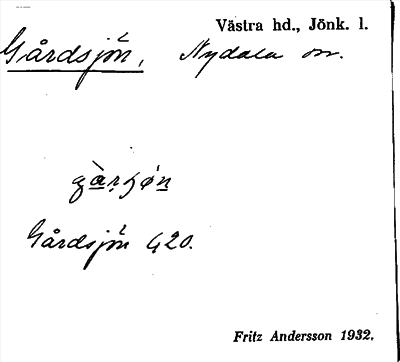 Västra hd., Jönk. l.
Gårdsjön, Nydala sn.
Gårdsjön 420.
Fritz Andersson 1932.